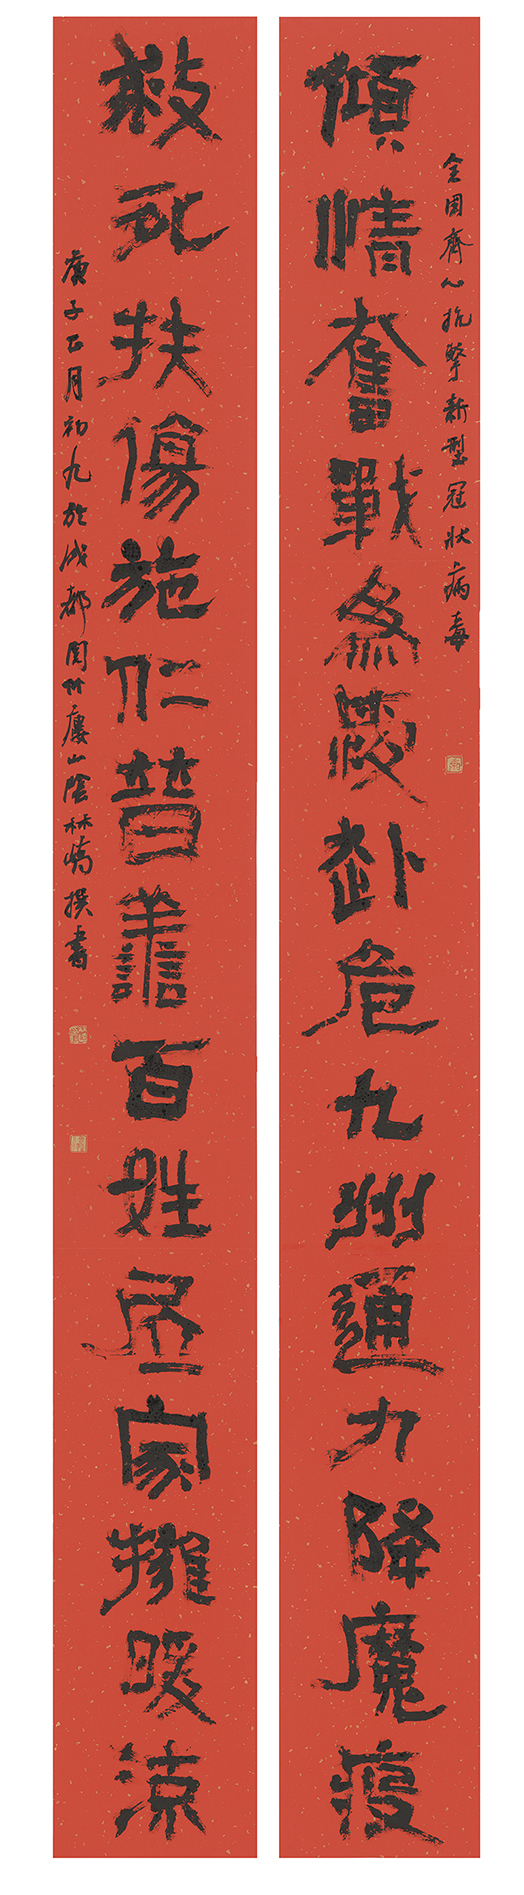 全国齊心抗擊新型冠狀病毒
傾情奮戰赴危九州通力降魔疫
救死扶傷施仁普善百姓家擁暖涼
庚子正月初九於成都聞竹廔山陰林撰書